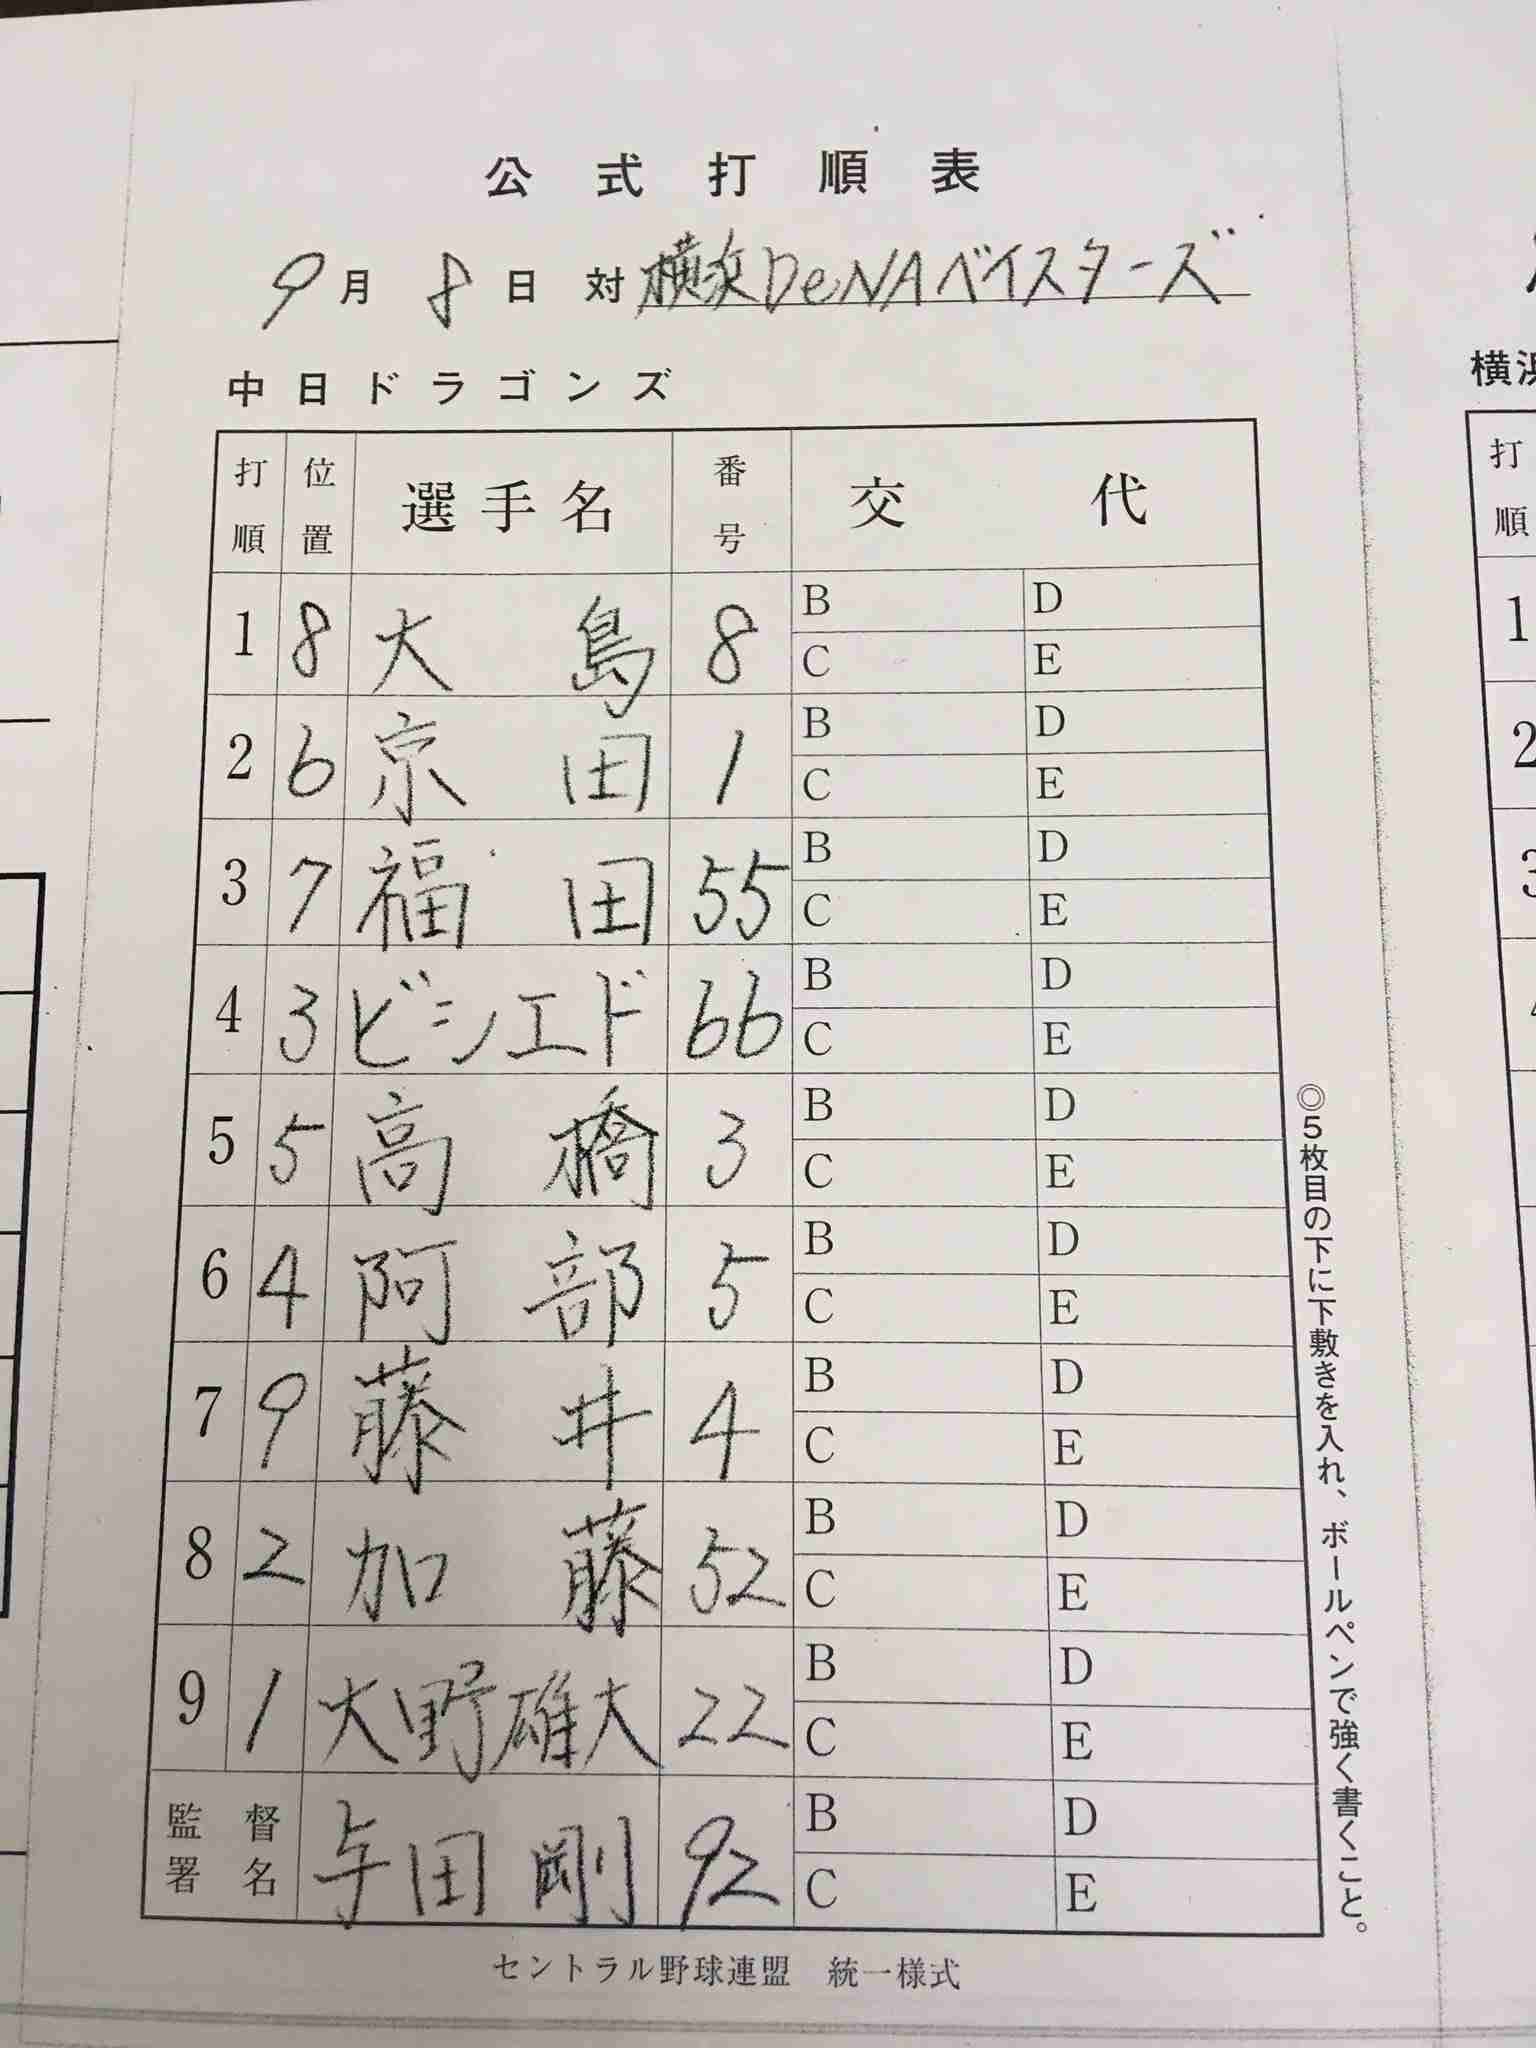 公式打順表
9月8日 対 横浜DeNAベイスターズ
中日ドラゴンズ
打順 位置 選手名 番号 交代
1 8 大島 8 B D
C E
2 6 京田 1 B D
C E
3 7 福田 55 B D
C E
4 3 ビシエド 66 B D
C E
5 5 高橋 3 B D
C E
6 4 阿部 5 B D
C E
7 9 藤井 4 B D
C E
8 2 加藤 52 B D
C E
9 1 大野雄大 22 B D
C E
監督署名 与田剛 92 B D
C E
◎5枚目の下に下敷きを入れ、ボールペンで強く書くこと。
セントラル野球連盟 統一様式
横浜
打順
1
2
3